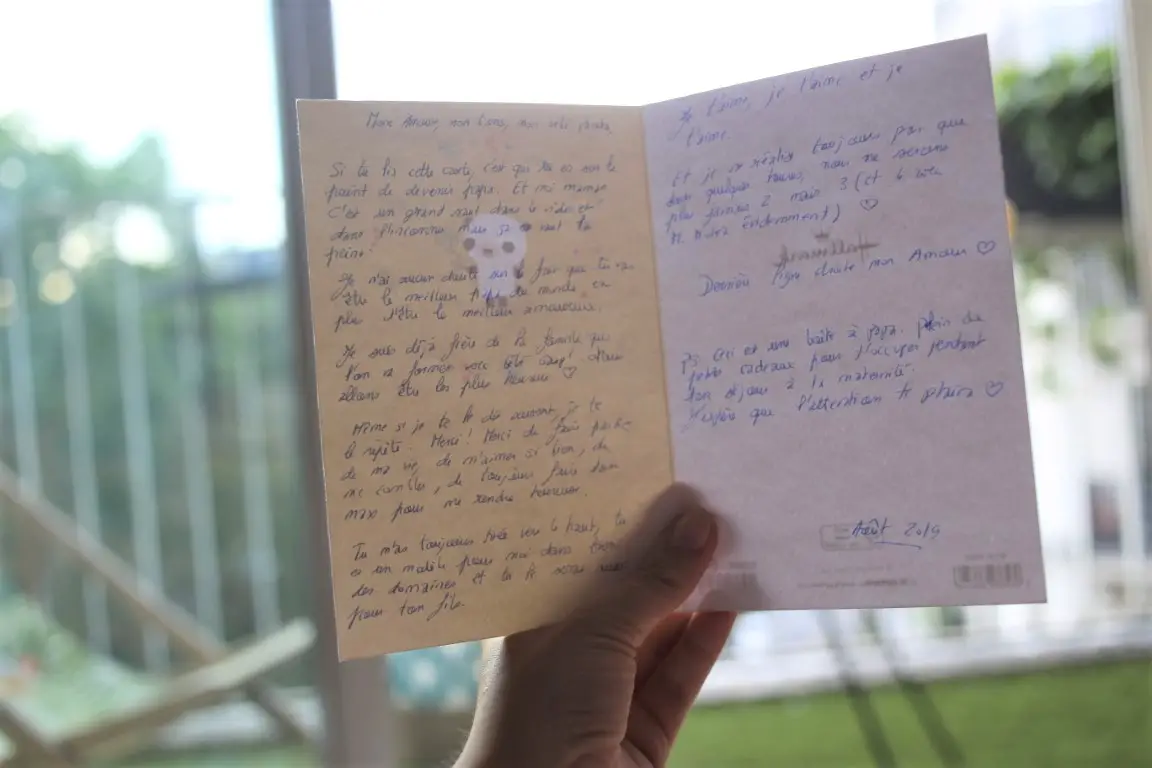 Mon Amour, mon
Si tu lis cette carte, c'est que tu es sur le
point de devenir papa. Et moi maman
C'est un grand saut dans le vide et
dans l'inconnu mais ça vaut la
peine.
Je n'ai aucun doute sur le fait que tu vas
être le meilleur du monde en
plus d'être le meilleur amoureux.
Je suis déjà fière de la famille que
l'on va former avec bébé nous
allons être les plus heureux ♡
Même si je te le dis souvent, je te
le répète. Merci! Merci de faire partie
de ma vie, de m'aimer si bien, de
me combler, de toujours faire ton
max pour me rendre heureuse.
Tu m'as toujours tirée vers le haut, tu
es un modèle pour moi dans
des domaines et tu le seras aussi
pour ton fils.
Je t'aime, je t'aime et je
t'aime.
Et je ne réalise toujours pas que
dans quelques heures, nous ne serons
plus jamais 2 mais 3 (et
évidemment) ♡
Hallmark
Dernière ligne droite mon Amour ♡
PS Ceci est une boîte à papa. Plein de
petits cadeaux pour t'occuper pendant
ton séjour à la maternité.
J'espère que l'attention te plaira ♡
Août 2019